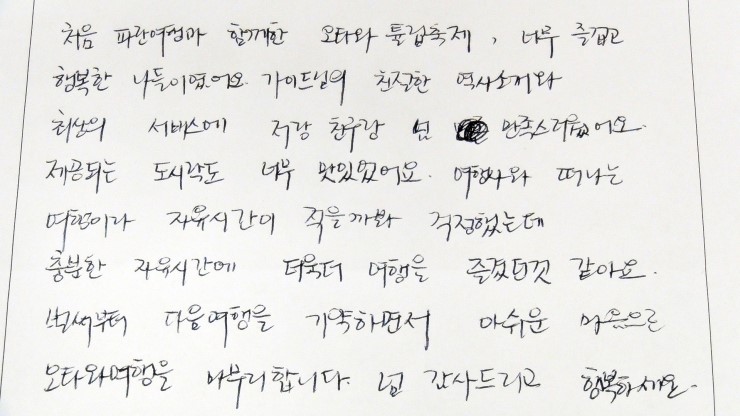 처음 파란여행과 함께한 오타와 튤립축제, 너무 즐겁고
행복한 나들이였어요. 가이드님의 친절한 역사소개와
최상의 서비스에 저랑 친구랑 넘 만족스러웠어요.
제공되는 도시락도 너무 맛있었어요. 여행사와 떠나는
여행이라 자유시간이 적을까봐 걱정했는데
충분한 자유시간에 더욱더 여행을 즐겼던것 같아요.
벌써부터 다음여행을 기약하면서 아쉬운 마음으로
오타와여행을 마무리합니다. 넘 감사드리고 행복하세요.